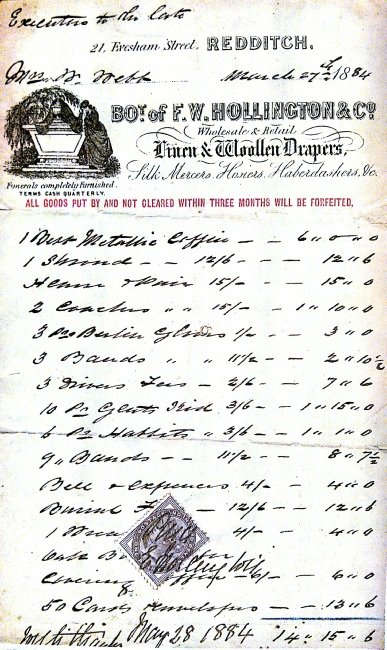 Executors to the late
21, Evesham Street, REDDITCH.
Mrs W. Webb March 27th 1884
BOT. of F. W. HOLLINGTON & CO.
Wholesale & Retail
Linen & Woollen Drapers,
Silk Mercers, Hosiers, Haberdashers, &c.
Funerals completely Furnished.
TERMS CASH QUARTERLY.
ALL GOODS PUT BY AND NOT CLEARED WITHIN THREE MONTHS WILL BE FORFEITED.
1 Best Metallic Coffin - - 6 " 0 " 0
1 Shroud - - 12/6 - - 12 " 6
Hearse & Pair 15/- - 15 " 0
2 Coaches " " 15/- - 1 " 10 " 0
3 Prs Berlin Gloves 1/- - 3 " 0
3 Bands " " 11½ - - 2 " 10½
3 Drivers Fees - 2/6 - - 7 " 6
10 Pr Gents Kid 3/6 - - 1 " 15 " 0
6 Pr Habbits " 3/6 - - 1 " 1 " 0
9 " Bands - - 11½ - - 8 " 7½
Bell & expences 4/- - 4 " 0
Burial 12/6 - - 12 " 6
1 4/- - 4 " 0
Covering Coffin 6/- - 6 " 0
50 Cards & envelopes - - 13 " 6
May 28 1884 " 14 " 15 " 6